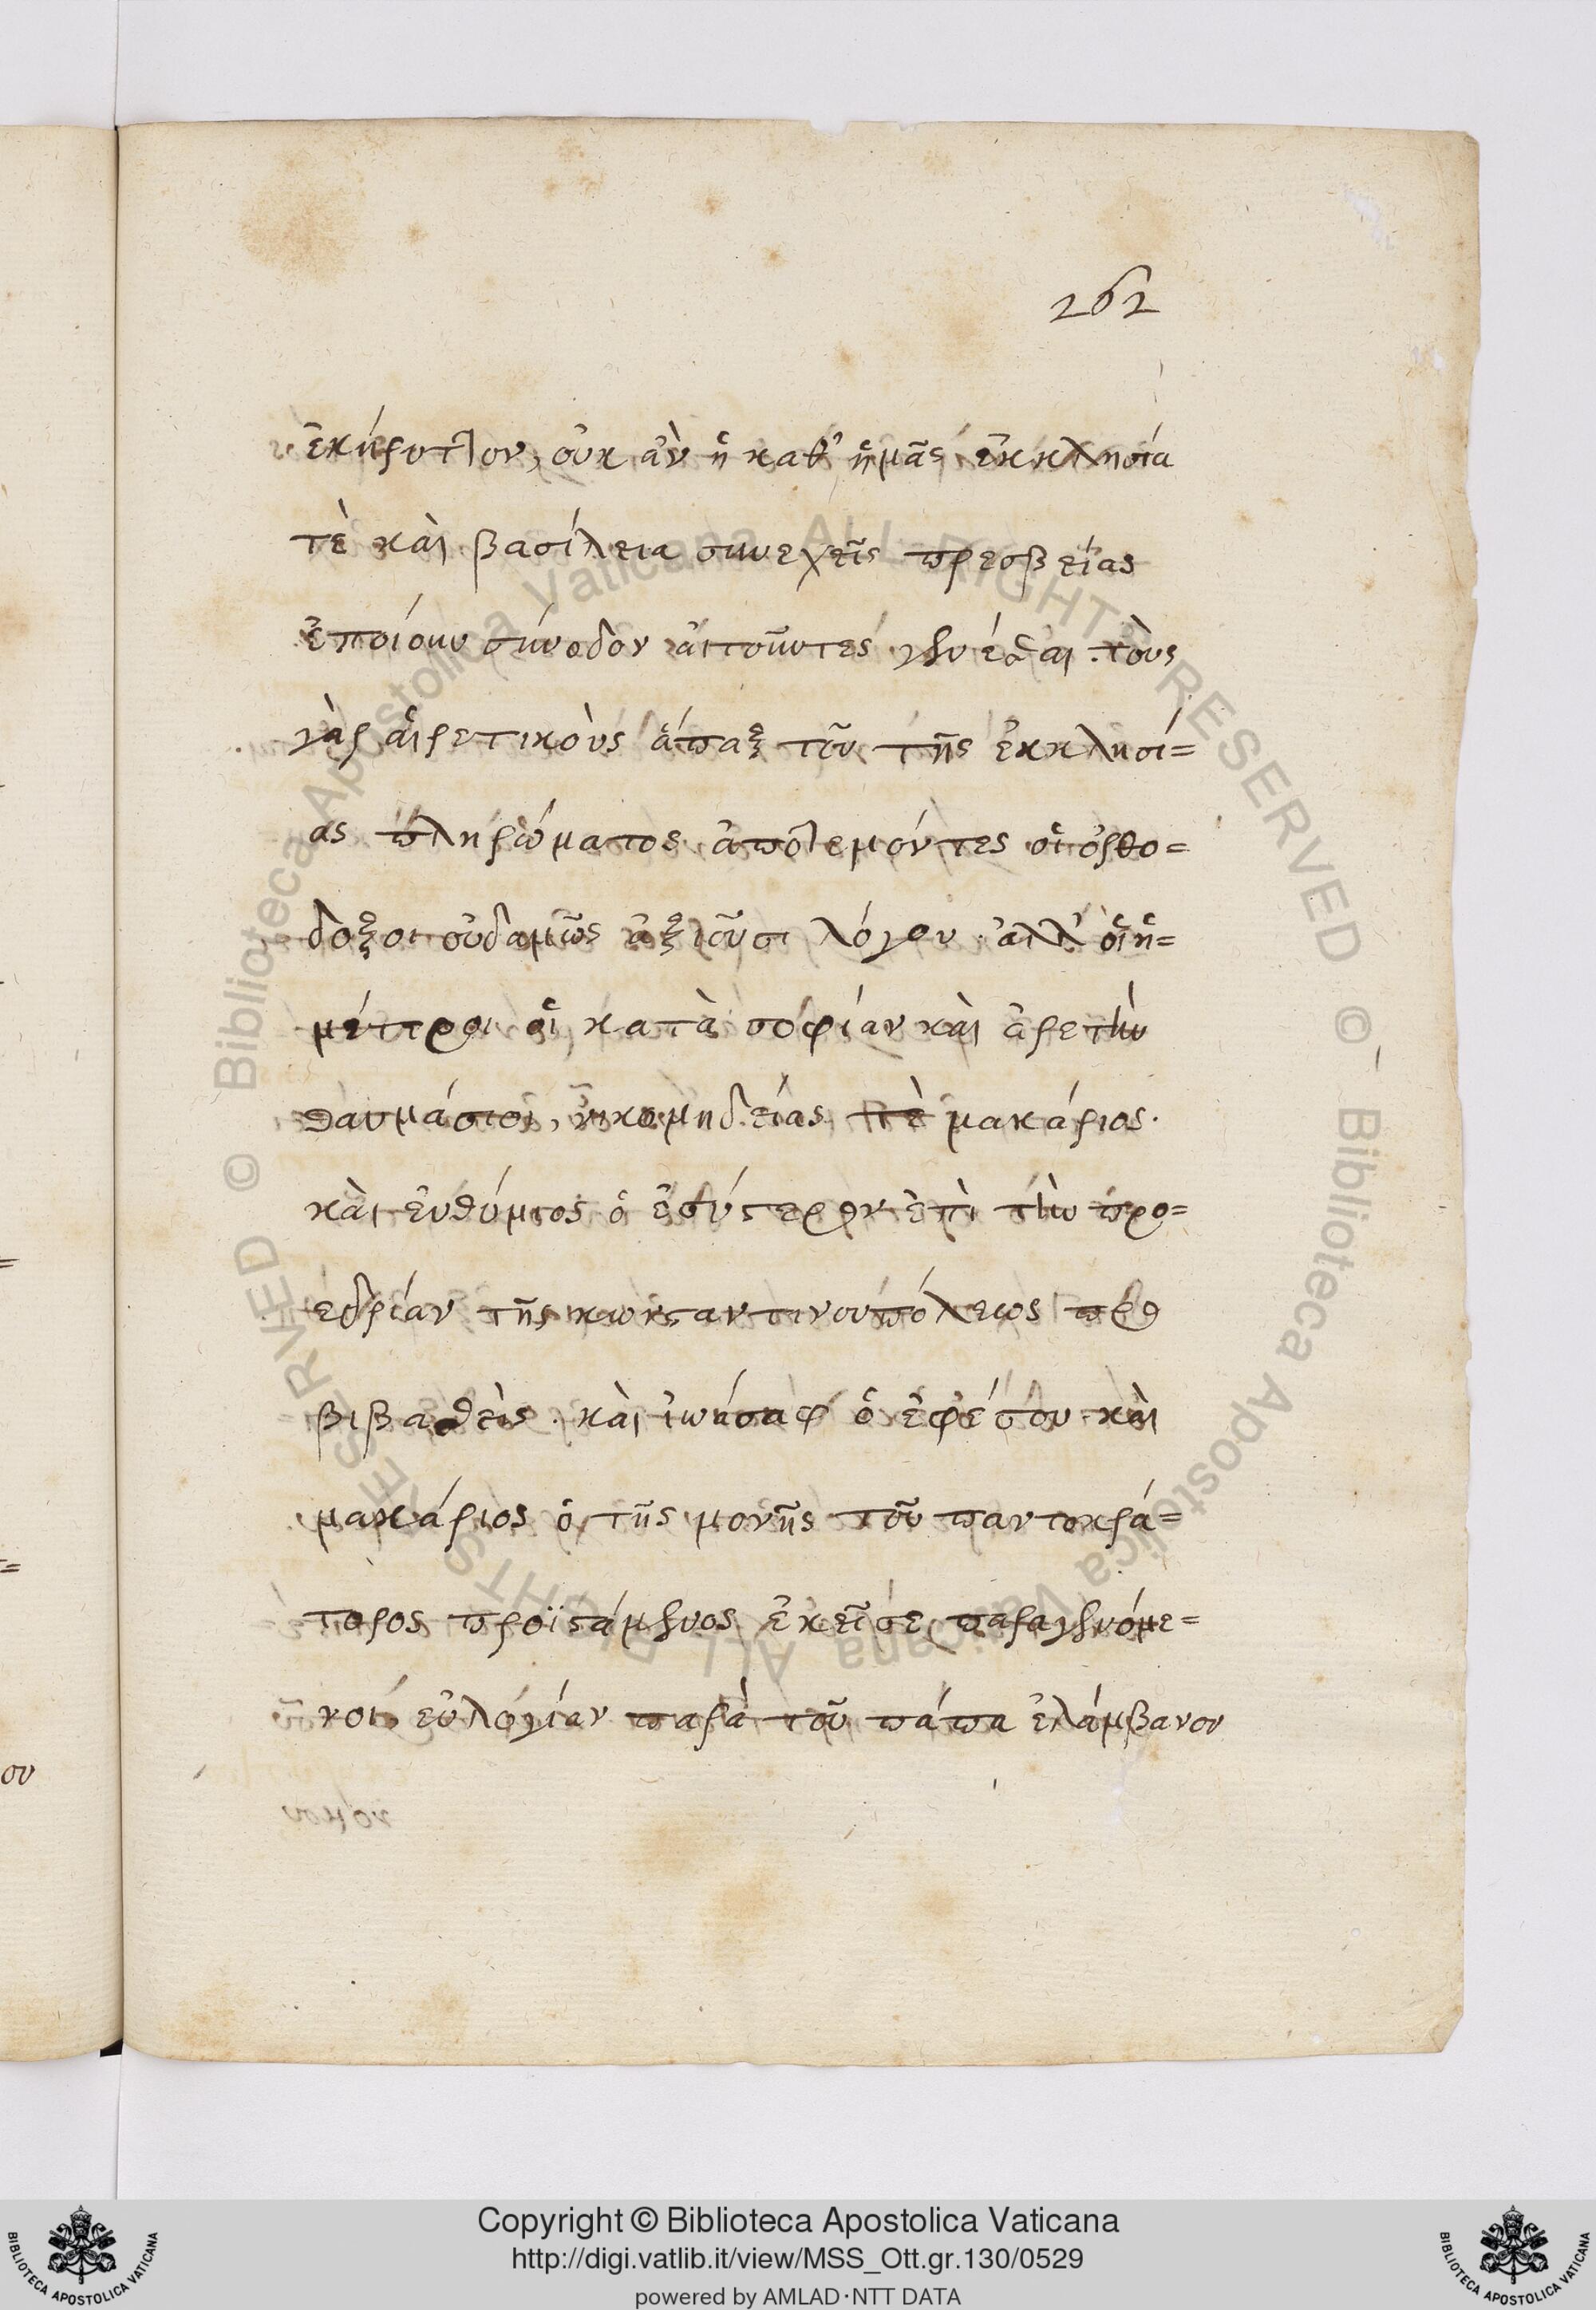 262
ἐκήρυττον, οὐκ ἀν ἡ καθ' ἡμᾶς ἐκκλησία
τὲ καὶ βασίλεια συνεχεῖς πρεσβείας
ἐποίουν σύνοδον ἀιτοῦντες γενέσθαι. τοὺς
γὰρ ἁιρετικοὺς ἅπαξ τοῦ τῆς ἐκκλησί=
ας πληρώματος ἀποτεμόντες οἱ ὀρθο=
δοξοι οὐδαμῶς ἀξιοῦσι λόγου. ἀλλ' οἱ ἡ=
μέτεροι οἱ κατὰ σοφίαν καὶ ἀρετὴν
θαυμάσιοι, νικομηδείας τὲ μακάριος.
καὶ ἐυθύμιος ὁ ἐσύστερον ἐπὶ τὴν προ=
εδρίαν τῆς κωνσταντινουπόλεως προ
βιβασθεὶς. καὶ ἰωάσαφ ὁ ἐφέσου καὶ
μακάριος ὁ τῆς μονῆς τοῦ παντοκρά=
τορος προϊστάμενος ἐκεῖσε παραγενόμε=
νοι εὐλογίαν παρὰ τοῦ πάπα ἐλάμβανον
ου
Copyright © Biblioteca Apostolica Vaticana
http://digi.vatlib.it/view/MSS_Ott.gr.130/0529
powered by AMLAD·NTT DATA
BIBLIOTECA APOSTOLICA VATICANA
BIBLIOTECA APOSTOLICA VATICANA
© Biblioteca Apostolica Vaticana ALL RIGHTS RESERVED
© Biblioteca Apostolica Vaticana ALL RIGHTS RESERVED